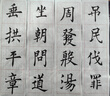 吊民伐罪
周發殷湯
坐朝問道
垂拱平章